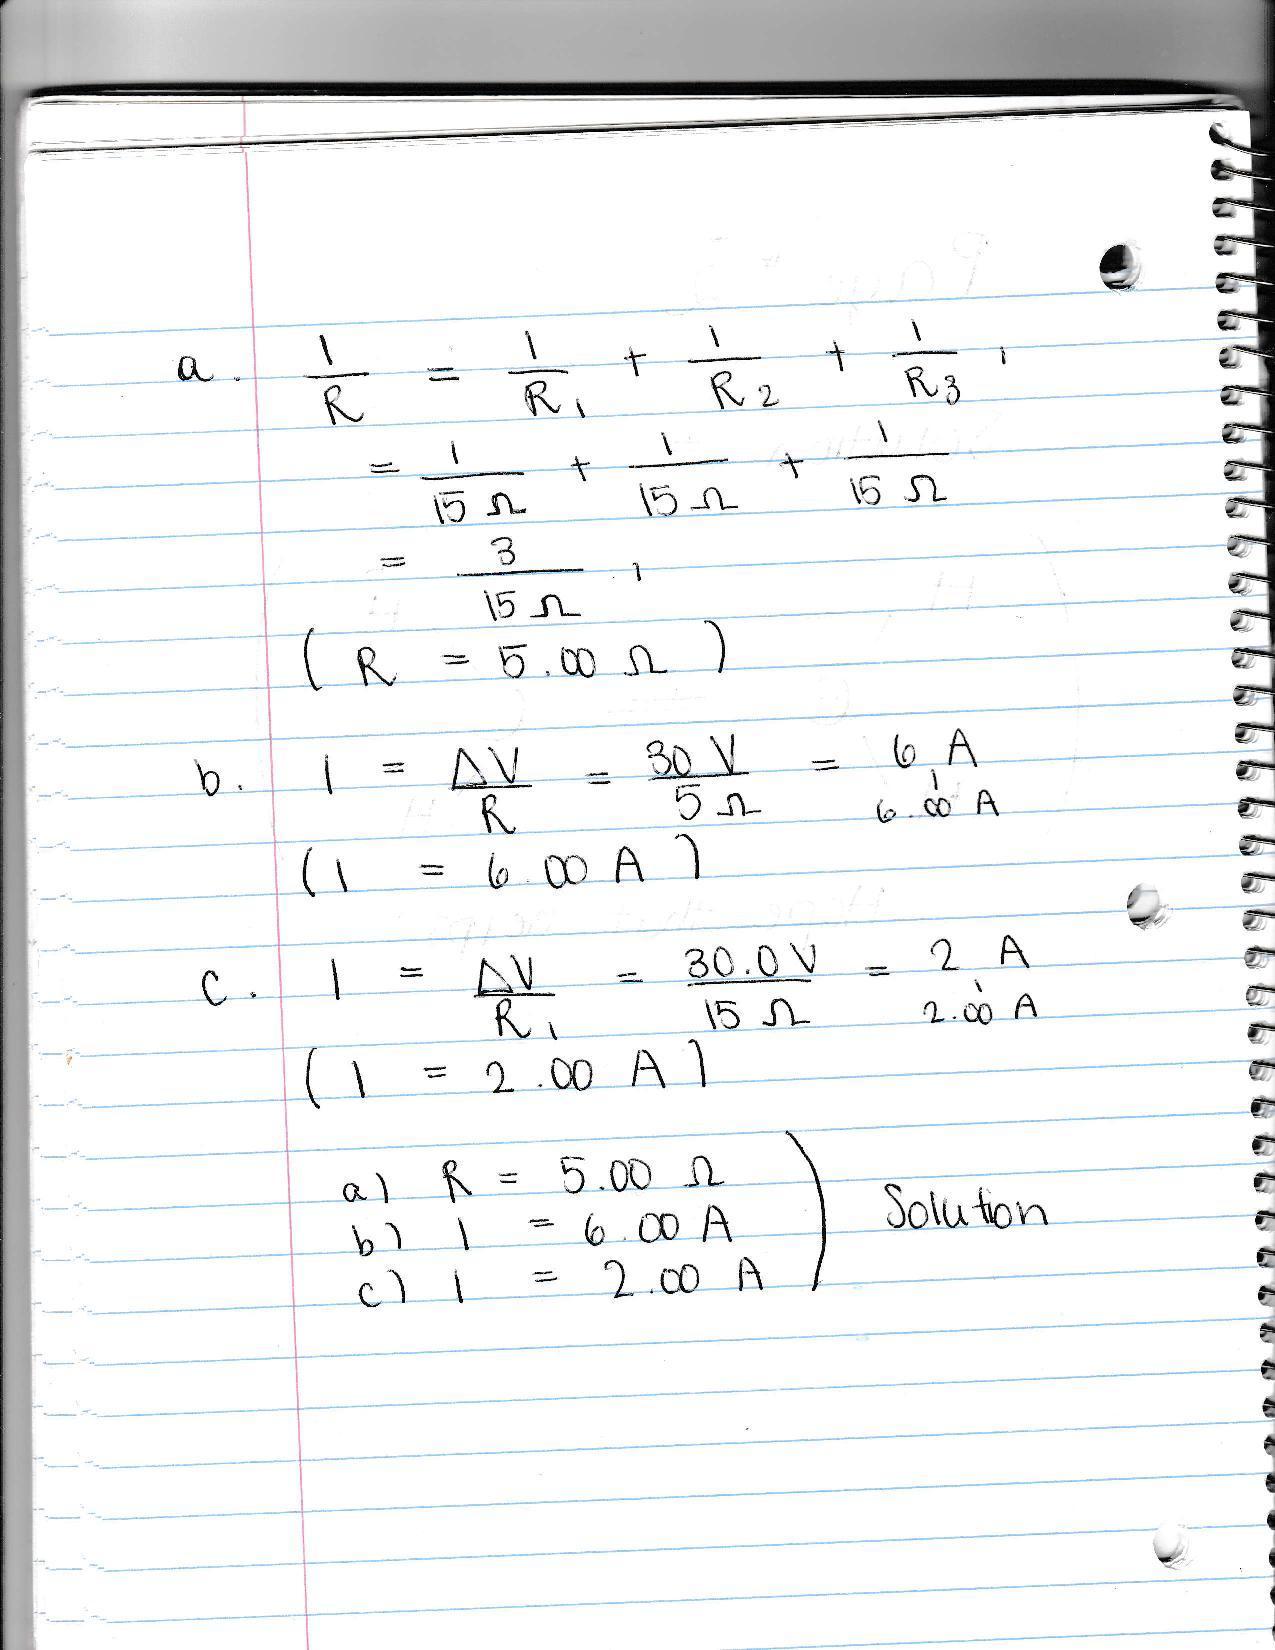 a. 1/R = 1/R₁ + 1/R₂ + 1/R₃ ,
= 1/15 Ω + 1/15 Ω + 1/15 Ω
= 3/15 Ω ,
( R = 5.00 Ω )
b. I = ΔV/R = 30 V/5 Ω = 6 A , 6.00 A
( I = 6.00 A )
c. I = ΔV/R₁ = 30.0 V/15 Ω = 2 A , 2.00 A
( I = 2.00 A )
a) R = 5.00 Ω
b) I = 6.00 A
c) I = 2.00 A
Solution